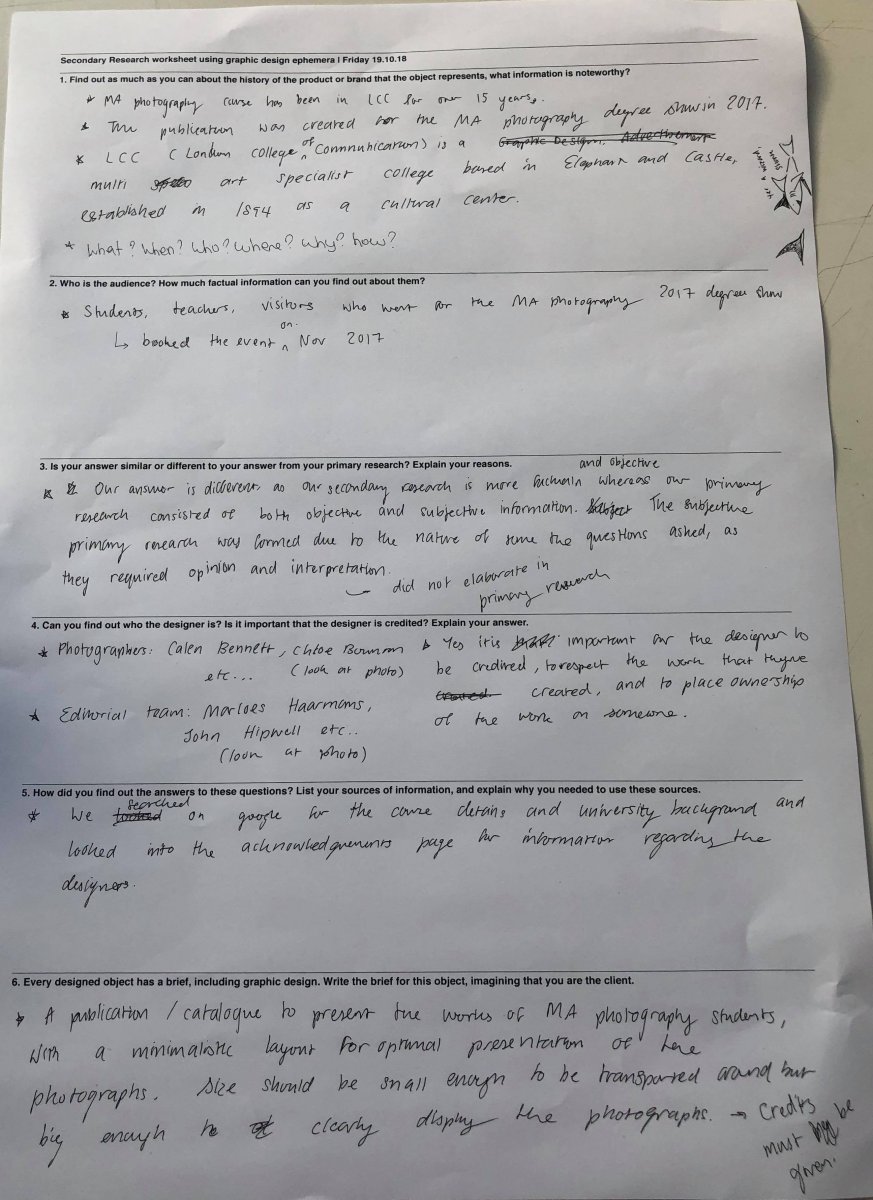 Secondary Research worksheet using graphic design ephemera I Friday 19.10.18
1. Find out as much as you can about the history of the product or brand that the object represents, what information is noteworthy?
* MA photography course has been in LCC for over 15 years.
* The publication was created for the MA photography degree show in 2017.
* LCC (London College of Communication) is a Graphic Design. Advertisement
multi art specialist college based in Elephant and Castle,
established in 1894 as a cultural center.
* What? When? Who? Where? Why? how?
2. Who is the audience? How much factual information can you find out about them?
* Students, teachers, visitors who went for the MA photography 2017 degree show
↳ booked the event on. Nov 2017
3. Is your answer similar or different to your answer from your primary research? Explain your reasons.
and objective
Our answer is different, as our secondary research is more factual whereas our primary
research consisted of both objective and subjective information. The subjective
primary research was formed due to the nature of some the questions asked, as
they required opinion and interpretation.
did not elaborate in
primary research
4. Can you find out who the designer is? Is it important that the designer is credited? Explain your answer.
* Photographers: Calen Bennett, Chloe Bowman
etc... (look at photo)
* Editorial team: Marloes Haarmans,
John Hipwell etc..
(look at photo)
Yes it is important for the designer to
be credited, to respect the work that theyve
created. created, and to place ownership
of the work on someone.
5. How did you find out the answers to these questions? List your sources of information, and explain why you needed to use these sources.
* We looked searched on google for the course details and university background and
looked into the acknowledgements page for information regarding the
designers.
6. Every designed object has a brief, including graphic design. Write the brief for this object, imagining that you are the client.
* A publication / catalogue to present the works of MA photography students,
with a minimalistic layout for optimal presentation of the
photographs. Size should be small enough to be transported around but
big enough to clearly display the photographs. → Credits
must be
given.